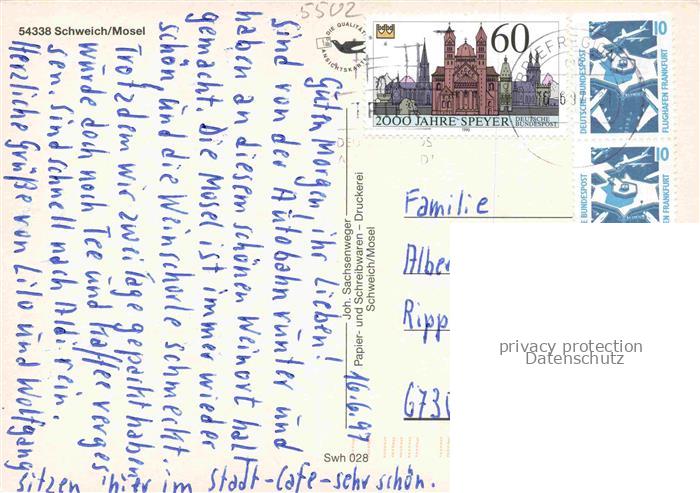 5502
54338 Schweich/Mosel
DIE QUALITÄTS
ANSICHTSKARTE
60
2000 JAHRE SPEYER
DEUTSCHE
BUNDESPOST
1990
10
DEUTSCHE BUNDESPOST
FLUGHAFEN FRANKFURT
10
BUNDESPOST
FEN FRANKFURT
BRIEFREGION
Guten Morgen ihr Lieben! 16.6.97
Sind von der Autobahn runter und
haben an diesem schönen Weinort halt
gemacht. Die Mosel ist immer wieder
schön und die Weinschorle schmeckt.
Trotzdem wir zwei Tage gepackt haben
würde doch noch Tee und Kaffee verges
sen. Sind schnell nach Aldi rein.
Herzliche Grüße von Lilo und Wolfgang
sitzen hier im Stadt-Cafe-sehr schön.
Joh. Sachsenweger
Papier- und Schreibwaren – Druckerei
Schweich/Mosel
Swh 028
Familie
Alber
Ripp
6730
privacy protection
Datenschutz